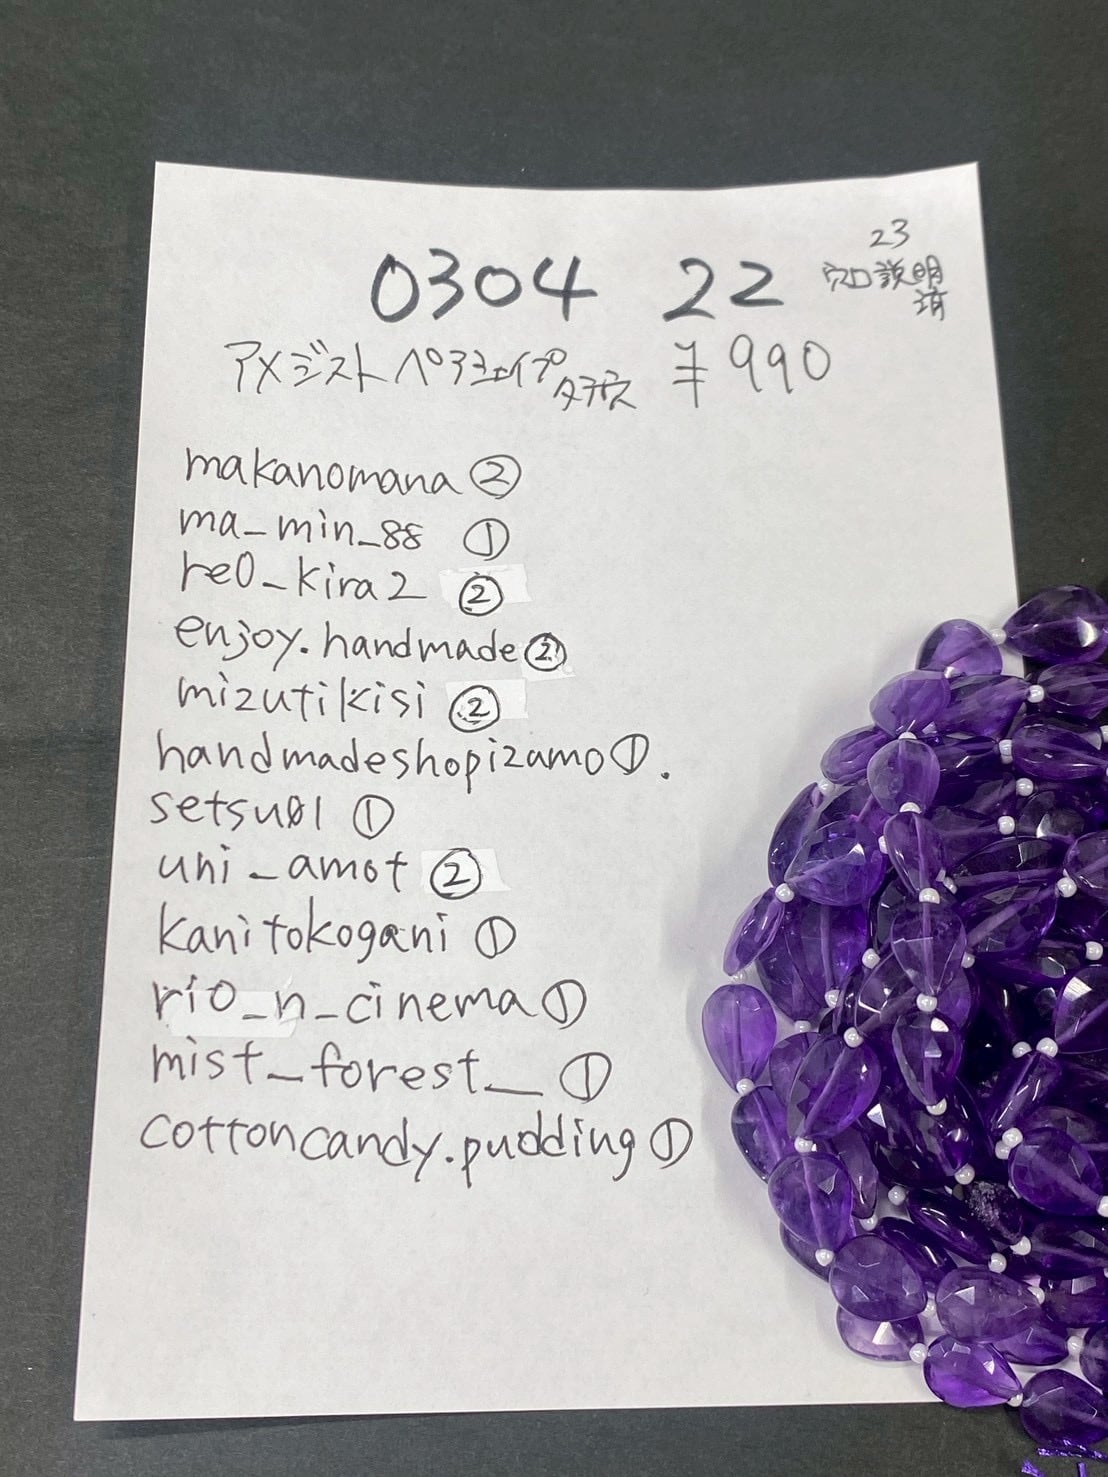 23
穴口説明
済
0304 22
アメジストペアシェイプタテ穴 ¥990
makanomana ②
ma_min_88 ①
re0_kira2 ②
enjoy.handmade ②
mizutikisi ②
handmadeshopizamo ①.
setsu01 ①
uni_amot ②
kanitokogani ①
rio_n_cinema ①
mist_forest__ ①
cottoncandy.pudding ①